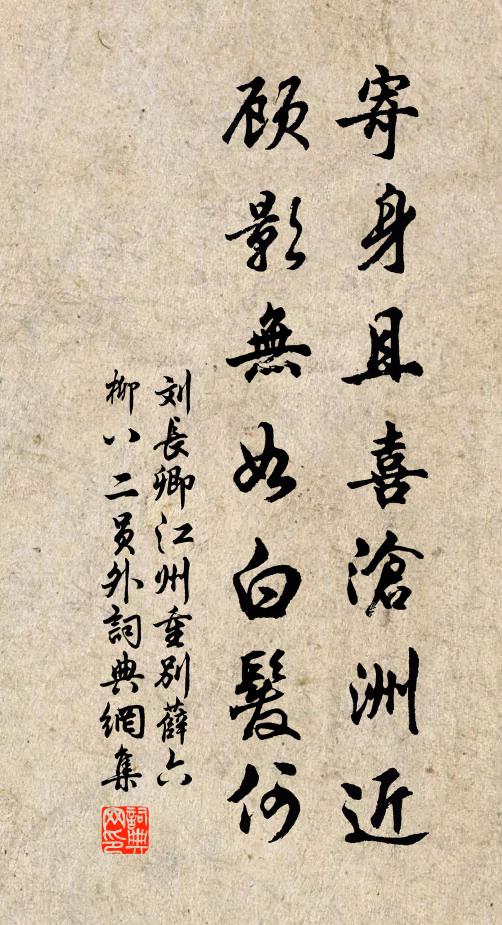 寄身且喜滄洲近
顧影無如白髮何
刘長卿江州重別薛六
柳八二員外詞典網集
詞典
网印